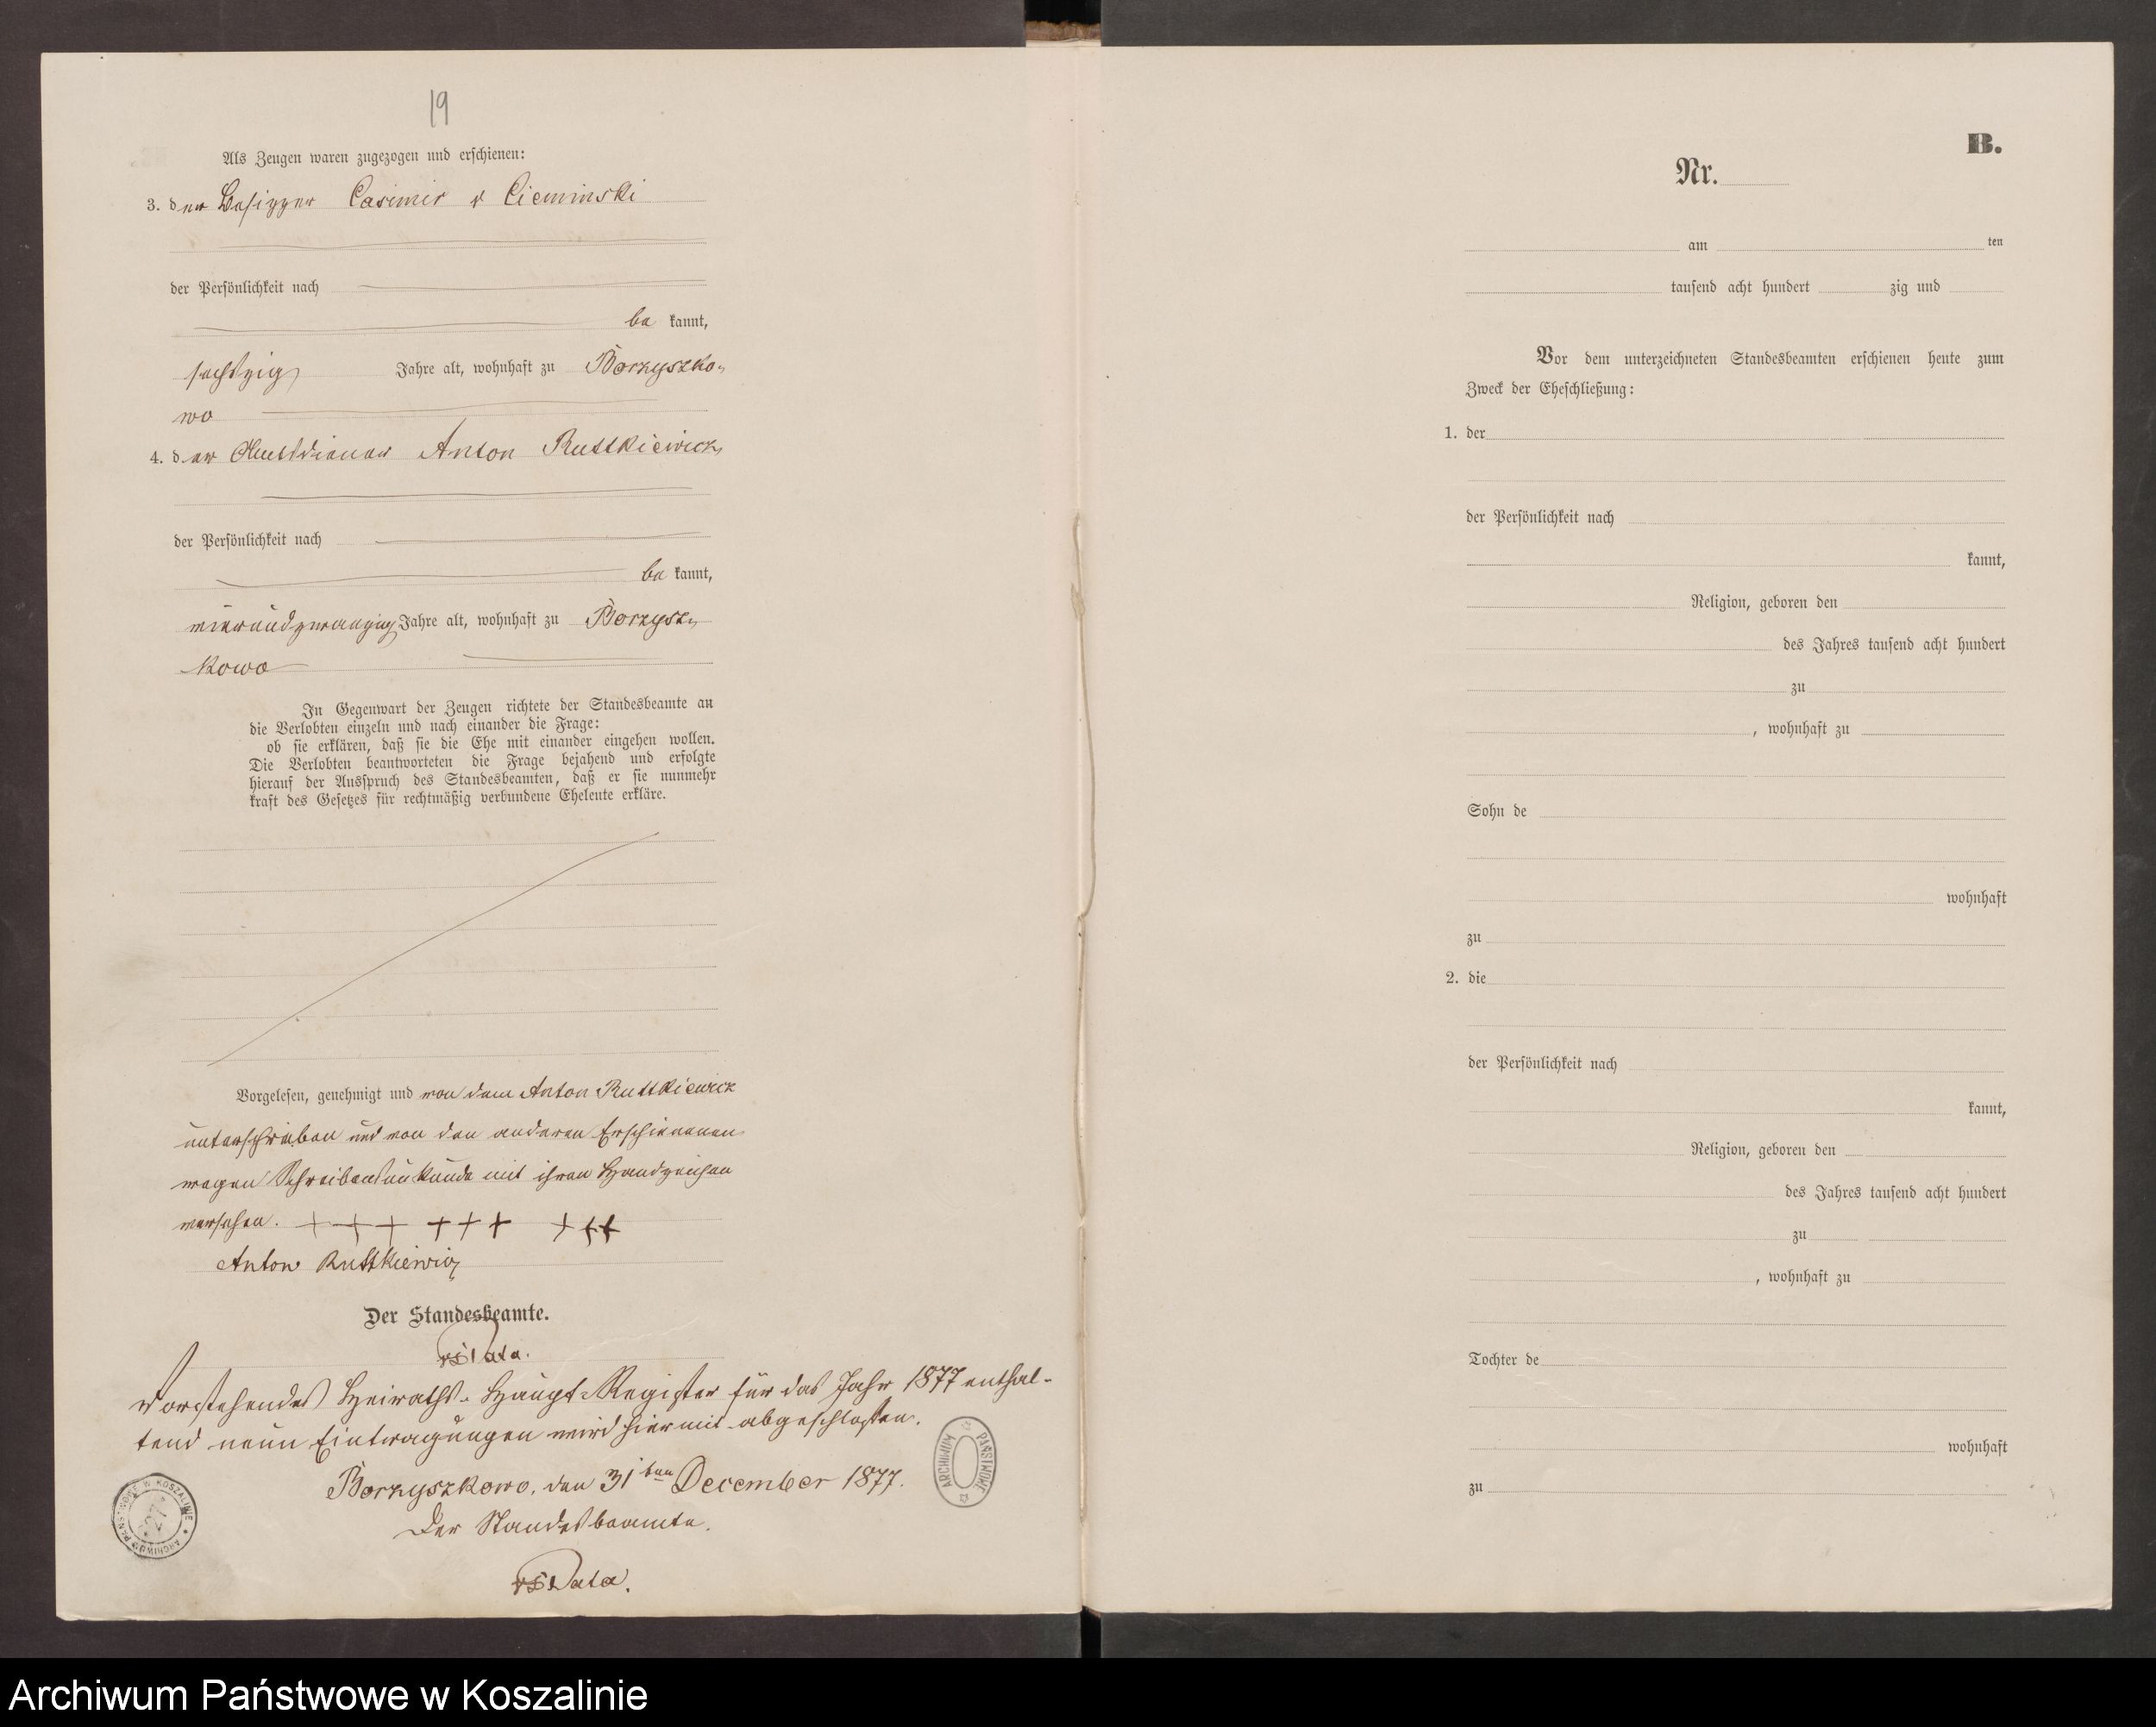 19
Als Zeugen waren zugezogen und erschienen:
3. der Besitzer Casimir v Cieminski
der Persönlichkeit nach
be kannt,
sechszig Jahre alt, wohnhaft zu Borzyszko-
wo
4. der Amtsdiener Anton Ruttkiewicz,
der Persönlichkeit nach
be kannt,
vierundzwanzig Jahre alt, wohnhaft zu Borzysz-
kowo
In Gegenwart der Zeugen richtete der Standesbeamte an
die Verlobten einzeln und nach einander die Frage:
ob sie erklären, daß sie die Ehe mit einander eingehen wollen.
Die Verlobten beantworteten die Frage bejahend und erfolgte
hierauf der Ausspruch des Standesbeamten, daß er sie nunmehr
kraft des Gesetzes für rechtmäßig verbundene Eheleute erkläre.
Vorgelesen, genehmigt und von dem Anton Ruttkiewicz
unterschrieben und von den anderen Erschienenen
wegen Schreibensunkunde mit ihren Handzeichen
versehen. + + + + + + + + +
Anton Ruttkiewicz
Der Standesbeamte.
Vorstehendes Heiraths-Haupt-Register für das Jahr 1877 enthal-
tend neun Eintragungen wird hiermit abgeschlossen.
Borzyszkowo, den 31ten December 1877.
Der Standesbeamte.
ARCHIWUM PAŃSTWOWE
ARCHIWUM PAŃSTWOWE W KOSZALINIE
27
B.
Nr.
am ten
tausend acht hundert zig und
Vor dem unterzeichneten Standesbeamten erschienen heute zum
Zweck der Eheschließung:
1. der
der Persönlichkeit nach
kannt,
Religion, geboren den
des Jahres tausend acht hundert
zu
, wohnhaft zu
Sohn de
wohnhaft
zu
2. die
der Persönlichkeit nach
kannt,
Religion, geboren den
des Jahres tausend acht hundert
zu
, wohnhaft zu
Tochter de
wohnhaft
zu
Archiwum Państwowe w Koszalinie